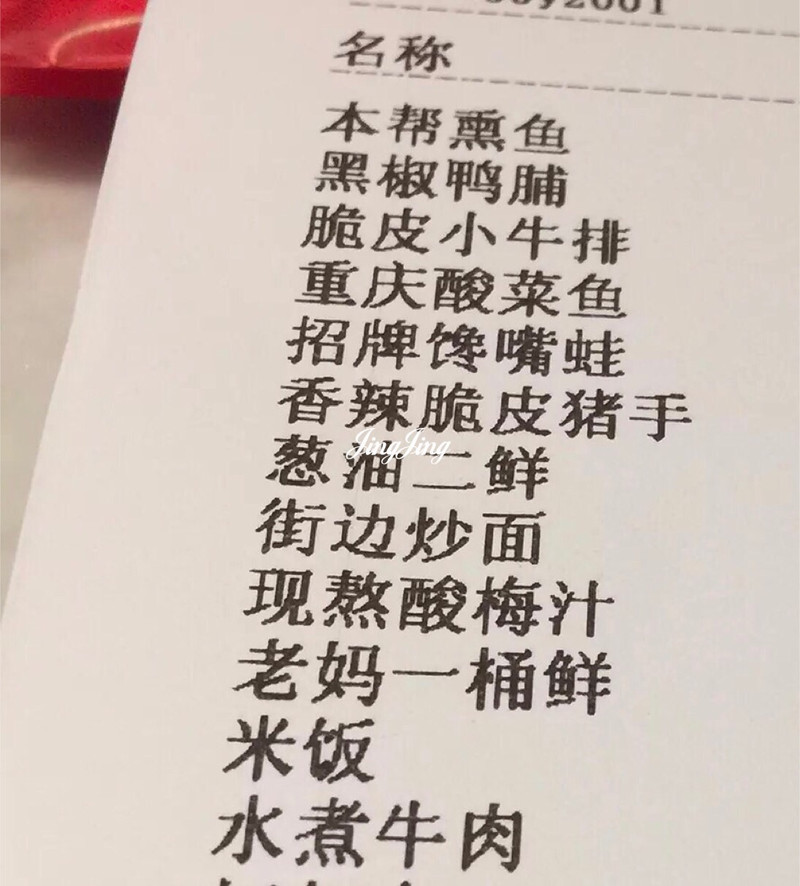 名称
本帮熏鱼
黑椒鸭脯
脆皮小牛排
重庆酸菜鱼
招牌馋嘴蛙
香辣脆皮猪手
JingJing
葱油二鲜
街边炒面
现熬酸梅汁
老妈一桶鲜
米饭
水煮牛肉